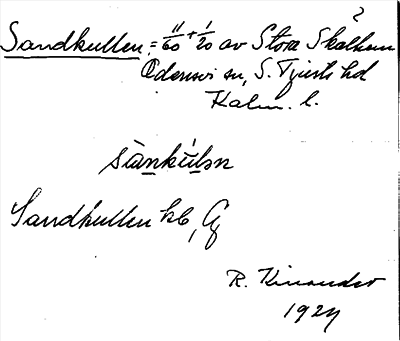 ?
Sandkullen = 11/60 + 1/20 av Stora Skälhem
Odensvi sn, S. Tjusts hd
Kalm. l.
sànkúlǝn
Sandkullen kb, Gg
R. Kinander
1927